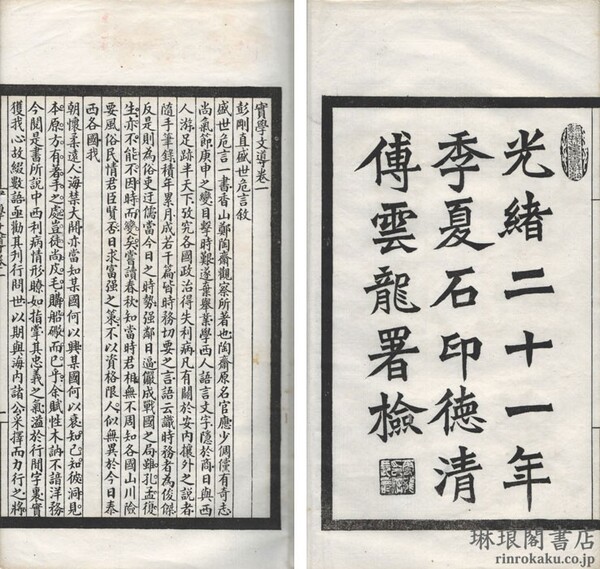 光緒二十一年
季夏石印德清
傅雲龍署檢
實學文導卷一
彭剛直盛世危言敘
盛世危言一書香山鄭陶齋觀察所著也陶齋原名官應少倜儻有奇志
尚氣節庚申之變目擊時艱遂棄舉業學西人語言文字隱於商日與西
人游足跡半天下攷究各國政治得失利病凡有關於安內攘外之說者
隨手筆錄積年累月成若干篇皆時務切要之言語云識時務者為俊傑
反是則為俗吏迂儒當今日之時勢強鄰日逼儼成戰國之局雖孔孟復
生亦不能不因時而變矣嘗讀春秋知當時君相無不周知各國山川險
要風俗民情君臣賢否日求富强之策不以資格限人似無異於今日泰
西各國我
朝懷柔遠人海禁大開亦當知某國何以興某國何以衰知己知彼洞見
本原方有著手之處豈徒尚皮毛購船礮而已乎余賦性木訥不諳洋務
今閱是書所說中西利病情形瞭如指掌其忠義之氣溢於行間字裏實
獲我心故綴數語亟勸其刋行問世以期與海內諸公采擇而力行之將
琳琅閣書店
rinrokaku.co.jp